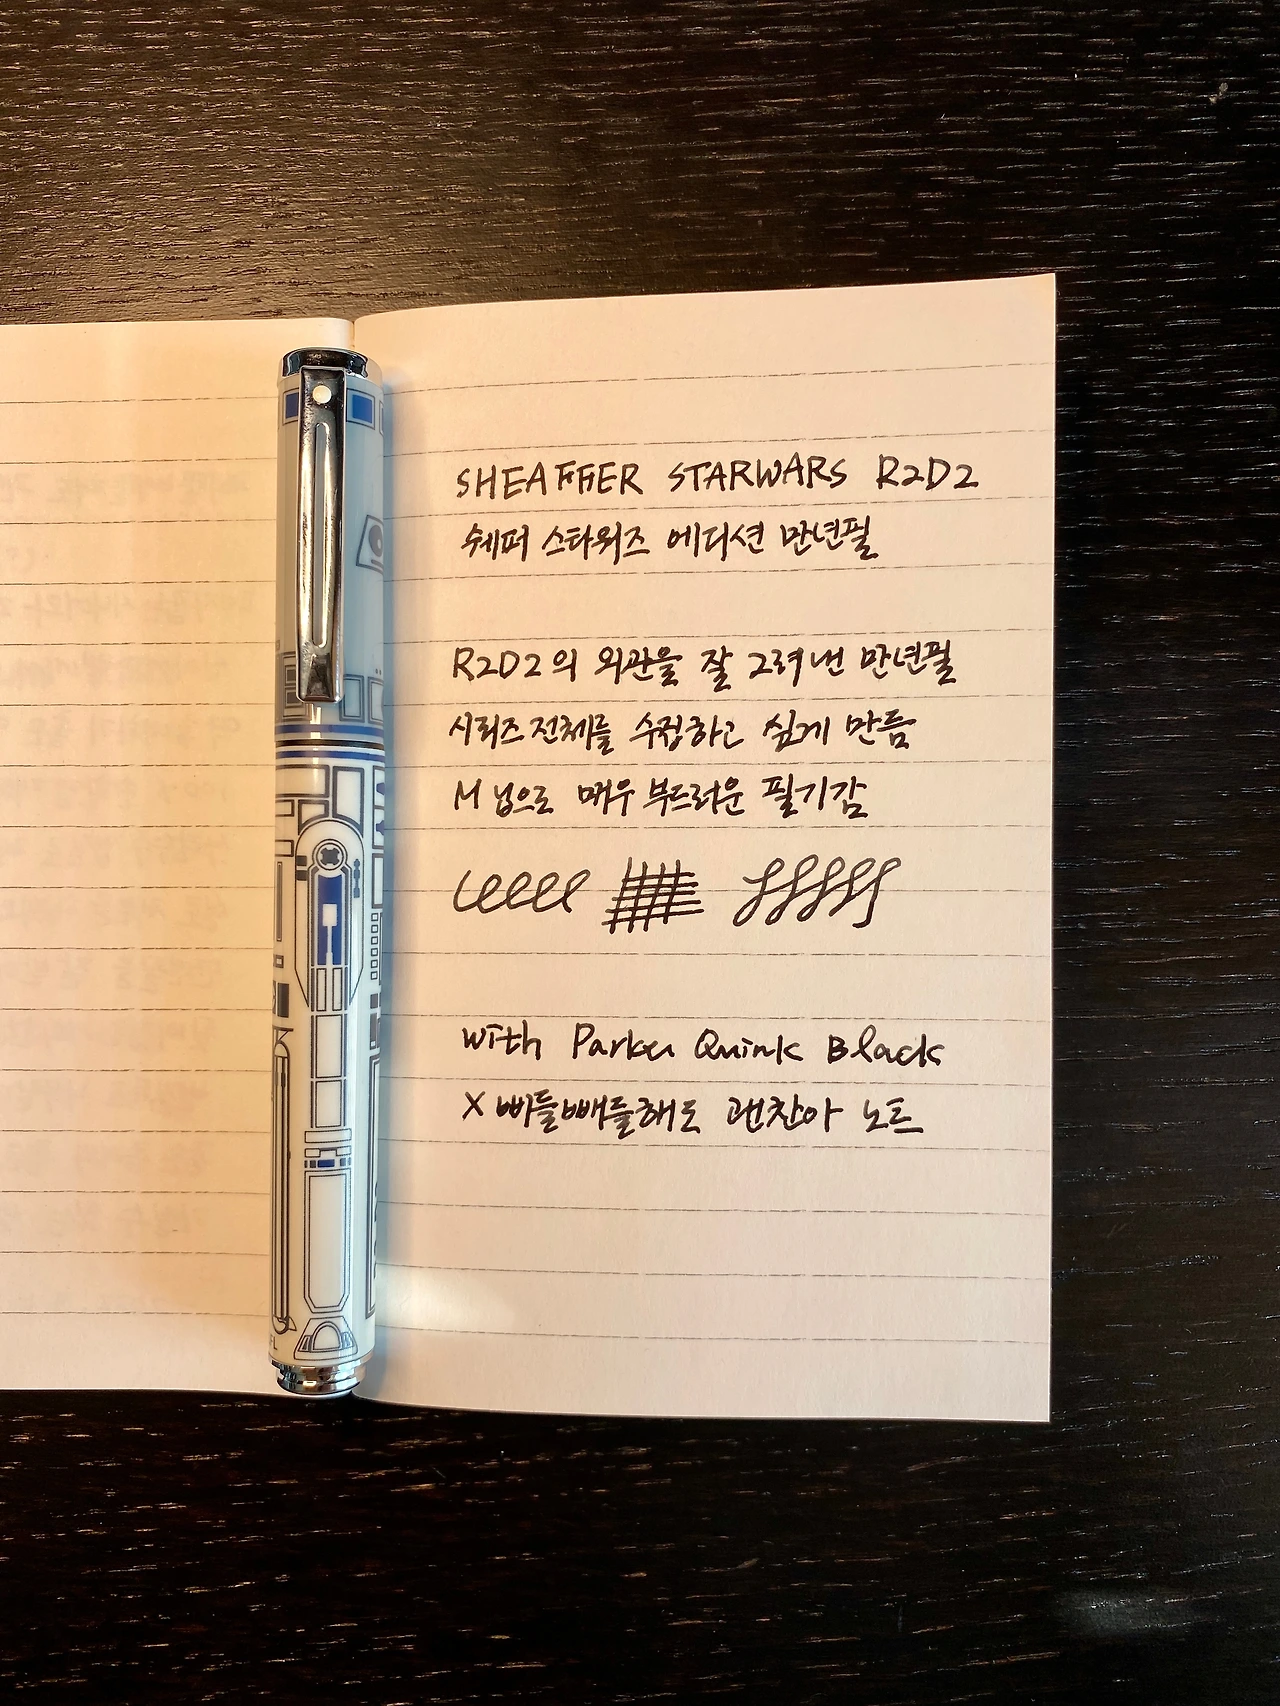 SHEAFFER STARWARS R2D2
쉐퍼 스타워즈 에디션 만년필
R2D2의 외관을 잘 그려낸 만년필
시리즈 전체를 수집하고 싶게 만듬
M 닙으로 매우 부드러운 필기감
with Parker Quink Black
X 삐뚤빼뚤해도 괜찮아 노트